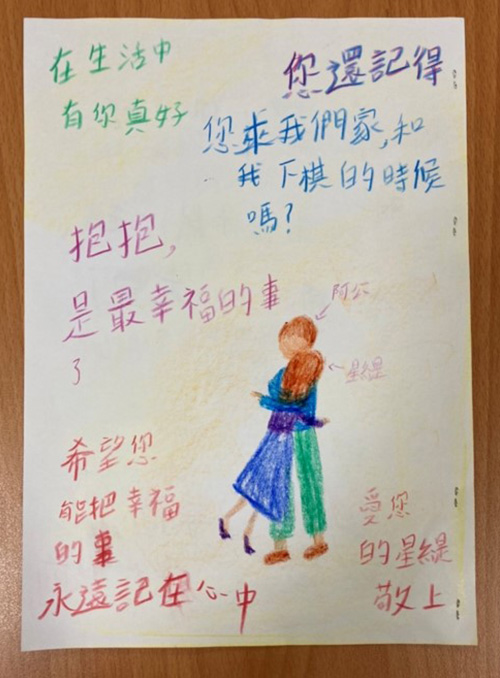 在生活中
有你真好
您還記得
您來我們家,和
我下棋的時候
嗎?
抱抱,
是最幸福的事
了
阿公
星緹
希望您
能把幸福
的事
永遠記在心中
愛您
的星緹
敬上